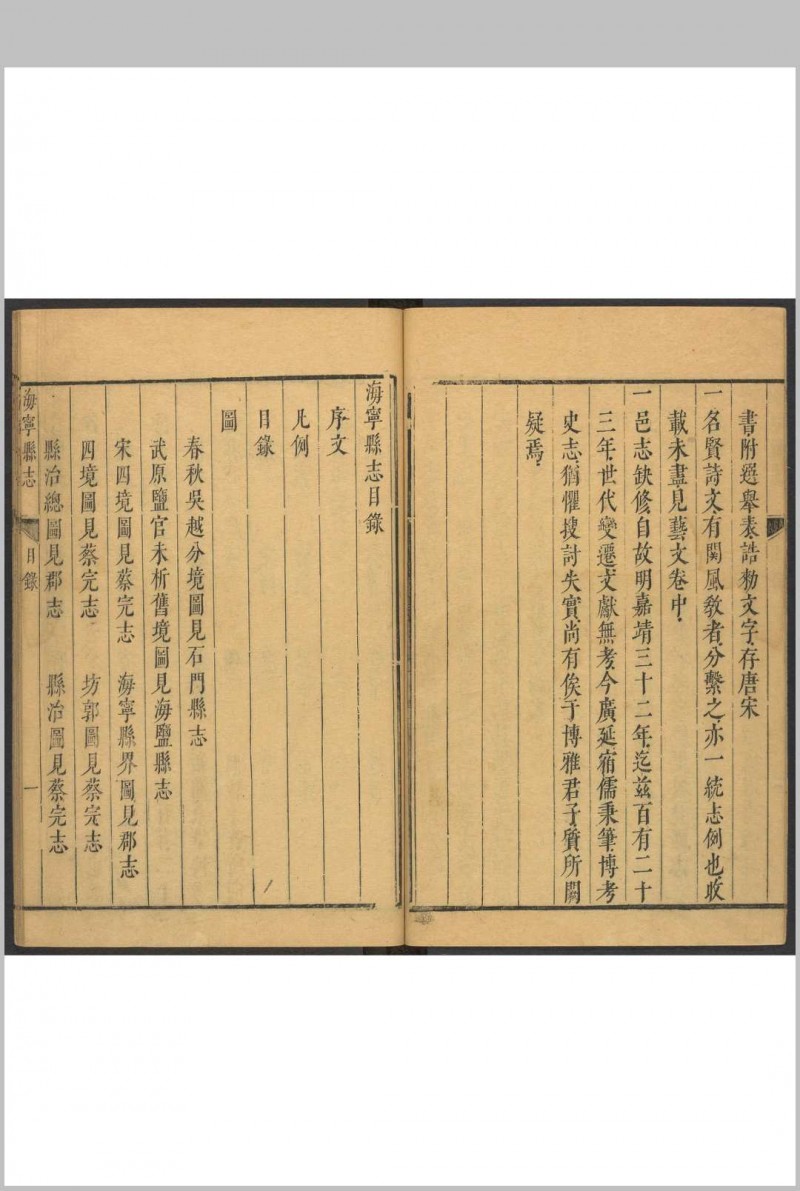 書附選舉表誥勅文字存唐宋
一名賢詩文有関風敎者分繫之亦一統志例也收
載未盡見藝文卷中
一邑志缺修自故明嘉靖三十二年迄茲百有二十
三年世代變遷文獻無考今廣延宿儒秉筆博考
史志猶懼搜討失實尚有俟于博雅君子質所闕
疑焉
海寧縣志目錄
序文
凡例
目錄
圖
春秋吳越分境圖見石門縣志
武原鹽官未析舊境圖見海鹽縣志
宋四境圖見蔡完志　海寧縣界圖見郡志
四境圖見蔡完志　坊郭圖見蔡完志
縣治總圖見郡志　縣治圖見蔡完志
海寧縣志　目錄　一